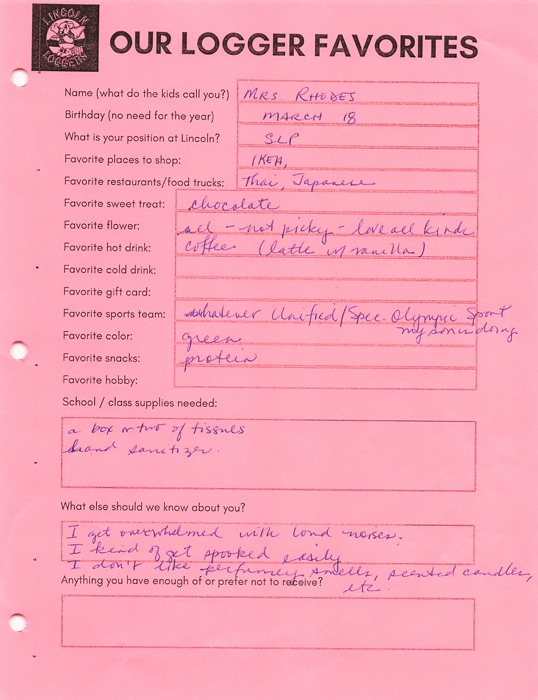 LINCOLN
LOGGERS
OUR LOGGER FAVORITES
Name (what do the kids call you?) MRS. RHODES
Birthday (no need for the year) MARCH 18
What is your position at Lincoln? SLP
Favorite places to shop: IKEA,
Favorite restaurants/food trucks: Thai, Japanese
Favorite sweet treat: chocolate
Favorite flower: all - not picky - love all kinds
Favorite hot drink: coffee (latte w/ vanilla)
Favorite cold drink:
Favorite gift card:
Favorite sports team: whatever Unified/Spec. Olympic Sport
my son is doing
Favorite color: green
Favorite snacks: protein
Favorite hobby:
School / class supplies needed:
a box or two of tissues
hand sanitizer.
What else should we know about you?
I get overwhelmed with loud noises.
I kind of get spooked easily
I don't like perfumey smells, scented candles,
etc.
Anything you have enough of or prefer not to receive?